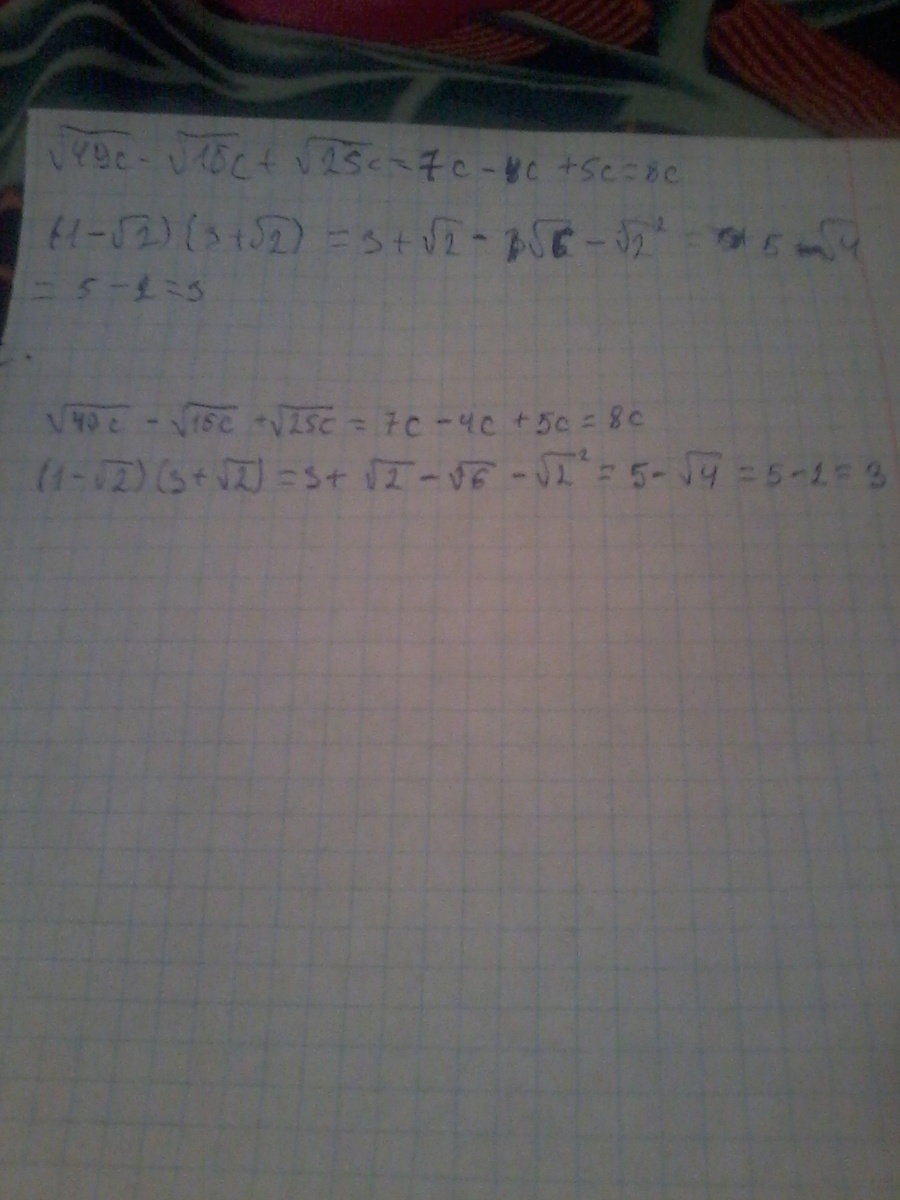 √49c - √16c + √25c = 7c - 4c + 5c = 8c
(1-√2)(3+√2) = 3 + √2 - √6 - √2² = 5 - √4
= 5 - 2 = 3
√49c - √16c + √25c = 7c - 4c + 5c = 8c
(1-√2)(3+√2) = 3 + √2 - √6 - √2² = 5 - √4 = 5 - 2 = 3